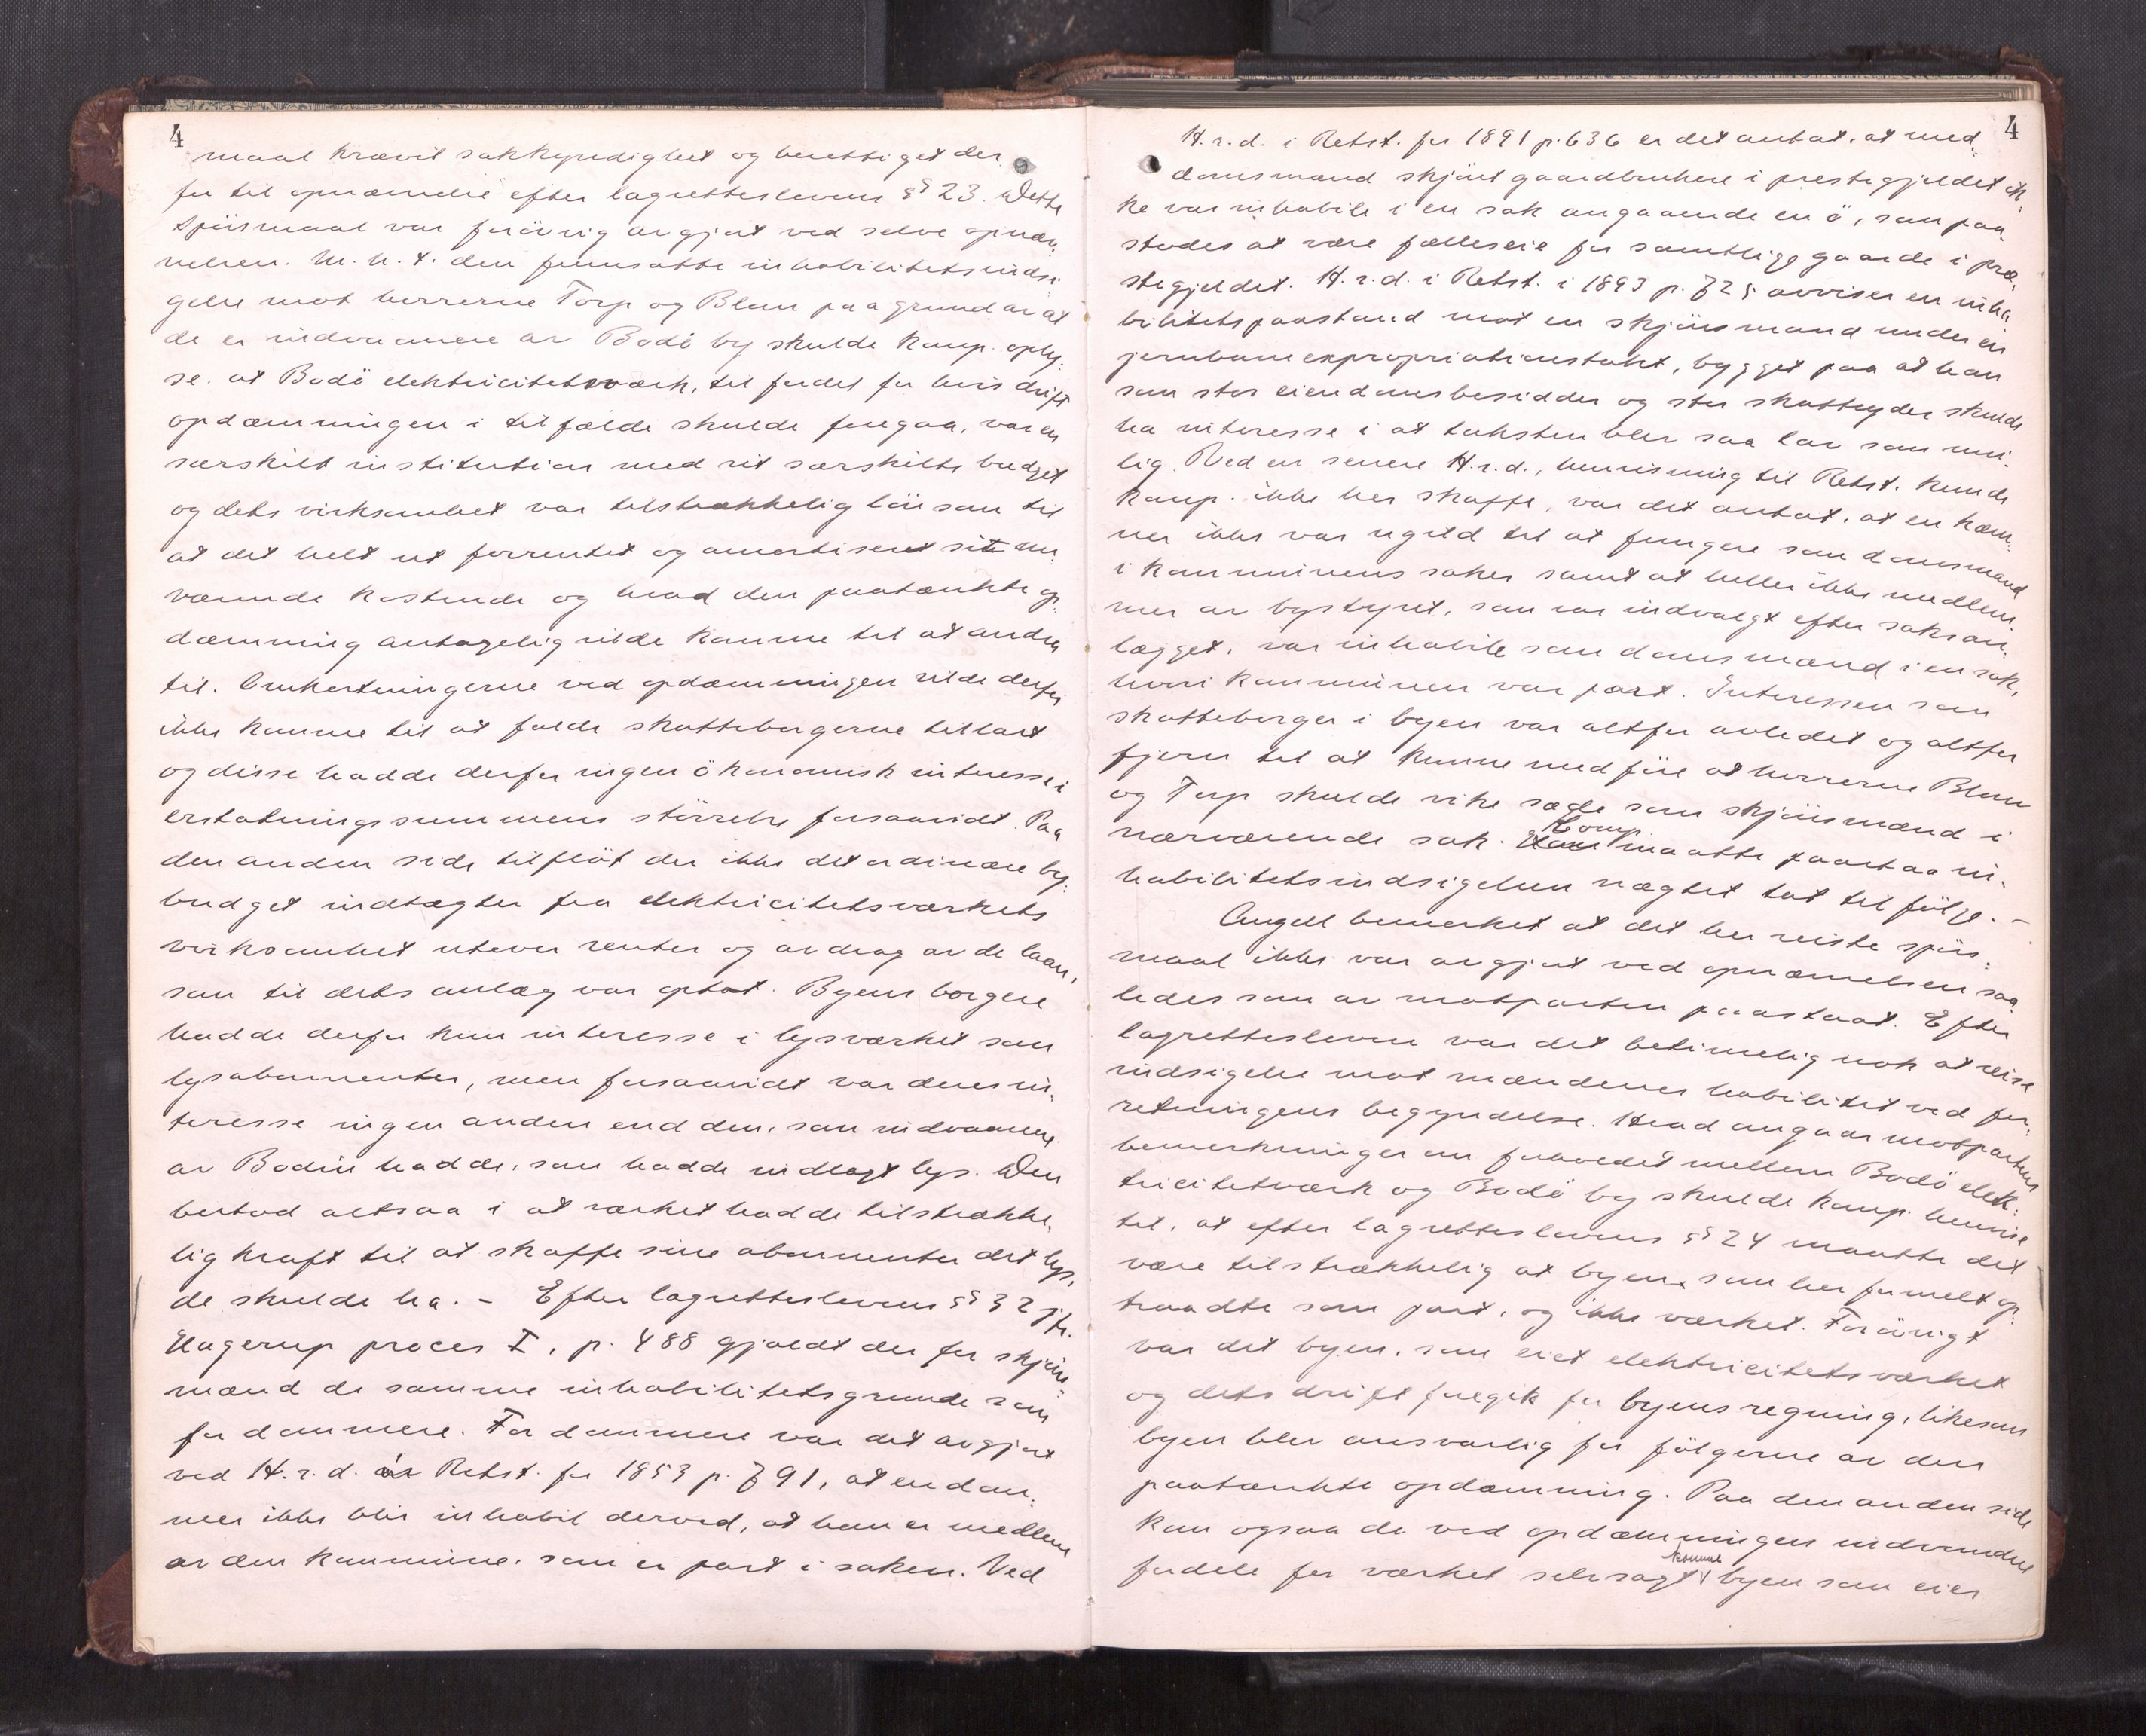 4
maal krævet sakkyndighet og berettiget der
for til opnævnelse efter lagretteslovens §§ 23. Dette
spörsmaal var forövrig avgjort ved selve opnæv-
nelsen. M.h.t. den fremsatte inhabilitetsindsi-
gelse mot herrerne Torp og Blom paa grund av at
de er indvaanere av Bodö by skulde komp. oply-
se. at Bodö elektricitetsværk, til fordel for hvis drift
opdæmningen i tilfælde skulde foregaa, var en
særskilt institution med sit særskilte budget
og dets virksomhet var tilstrækkelig lönsom til
at det helt ut forrentet og amortiseret sit nu-
værende kostende og hvad den paatænkte op-
dæmning antagelig vilde komme til at andra
til. Omkostningerne ved opdæmningen vilde derfor
ikke komme til at falde skatteborgerne tillast
og disse hadde derfor ingen ökonomisk interesse i
erstatningssummens störrelse forsaavidt. Paa
den anden side tilflöt der ikke det ordinære by-
budget indtægter fra elektricitetsværkets
virksomhet utover renter og avdrag av de laan,
som til dets anlæg var optat. Byens borgere
hadde derfor kun interesse i lysværket som
lysabonnenter, men forsaavidt var deres in-
teresse ingen anden end den, som indvaanere
av Bodin hadde, som hadde indlagt lys. Den
bestod altsaa i at værket hadde tilstrække-
lig kraft til at skaffe sine abonnenter det lys,
de skulde ha. - Efter lagretteslovens §§ 32 jfr.
Hagerup proces I, p. 488 gjaldt der for skjöns-
mænd de samme inhabilitetsgrunde som
for dommere. For dommere var det avgjort
ved H.r.d. i Retst. for 1853 p. 791, at en dom-
mer ikke blir inhabil derved, at han er medlem
av den kommune, som er part i saken. Ved
4
H.r.d. i Retst. for 1891 p. 636 er det antat, at med-
domsmænd skjönt gaardbrukere i prestegjeldet ik-
ke var inhabile i en sak angaaende en ö, som paa-
stodes at være fælleseie for samtlige gaarde i præ-
stegjeldet. H.r.d. i Retst. i 1893 p. 725 avviser en inha-
bilitetspaastand mot en skjönsmand under en
jernbaneexpropriationstakst, bygget paa at han
som stor eiendomsbesidder og stor skatteyder skulde
ha interesse i at taksten blev saa lav som mu-
lig. Ved en senere H.r.d., henvisning til Retst. kunde
komp. ikke her skaffe, var det antat, at en kæm-
ner ikke var ugild til at fungere som domsmand
i kommunens saker samt at heller ikke medlem-
mer av bystyret, som var indvalgt efter saksan-
lægget, var inhabile som domsmænd i en sak,
hvori kommunen var part. Interessen som
skatteborger i byen var altfor avledet og altfor
fjern til at kunne medföre at herrerne Blom
og Torp skulde vike sæde som skjönsmænd i
nærværende sak. Comp. maatte paastaa in-
habilitetsindsigelsen nægtet tat til fölge. -
Angell bemerket at det her reiste spörs-
maal ikke var avgjort ved opnævnelsen saa-
ledes som av motparten paastaat. Efter
lagretteslovens var det betimelig nok at reise
indsigelse mot mændenes habilitet ved for-
retningens begyndelse. Hvad angaar motpartens
bemerkninger om forholdet mellem Bodö elek-
tricitetsværk og Bodö by skulde komp. henvise
til, at efter lagretteslovens §§ 24 maatte det
være tilstrækkelig at byen, som her formelt op-
traadte som part, og ikke værket. Forövrigt
var det byen, som eiet elektricitetsværket
og dets drift foregik for byens regning, likesom
byen blev ansvarlig for fölgerne av den
paatænkte opdæmning. Paa den anden side
kom ogsaa de ved opdæmningen indvundne
fordele for værket selvsagt komme byen som eier